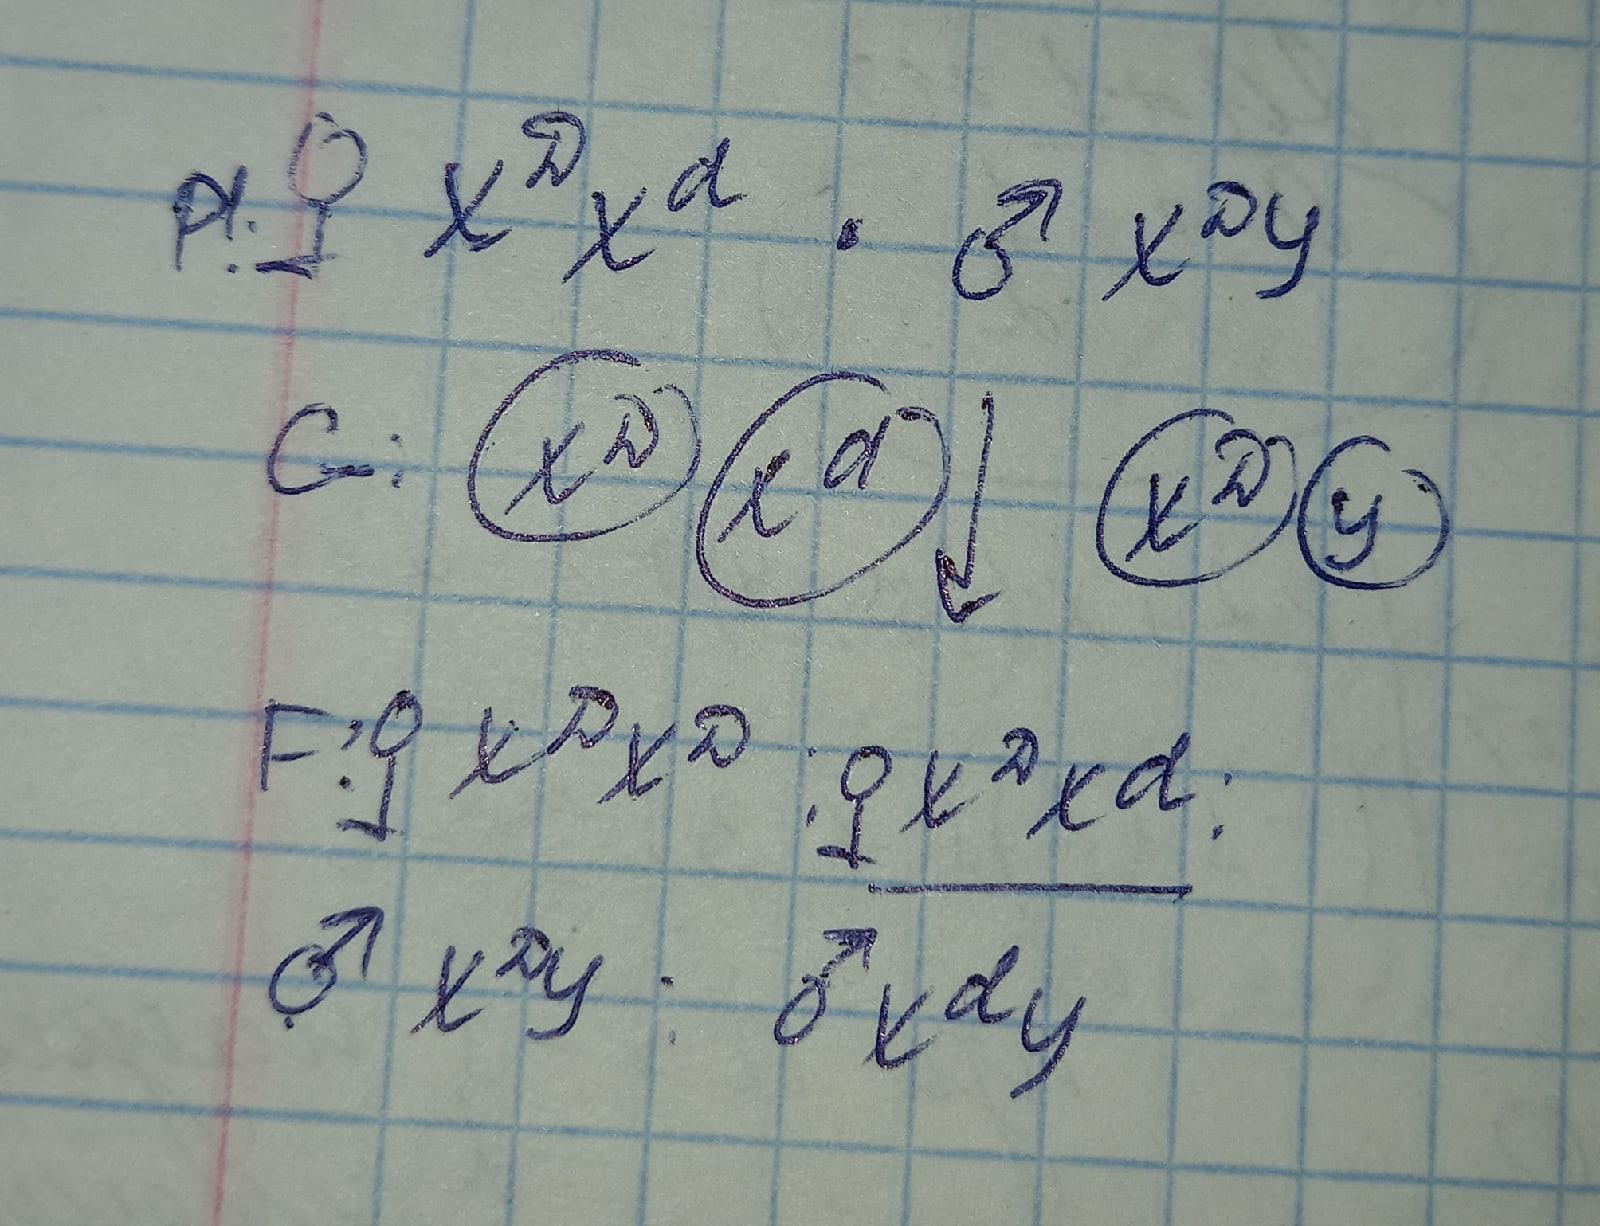 P1: ♀ XᴰXᵈ · ♂ XᴰY
G: Xᴰ Xᵈ ↓ Xᴰ Y
F: ♀ XᴰXᴰ : ♀ XᴰXᵈ :
♂ XᴰY : ♂ XᵈY